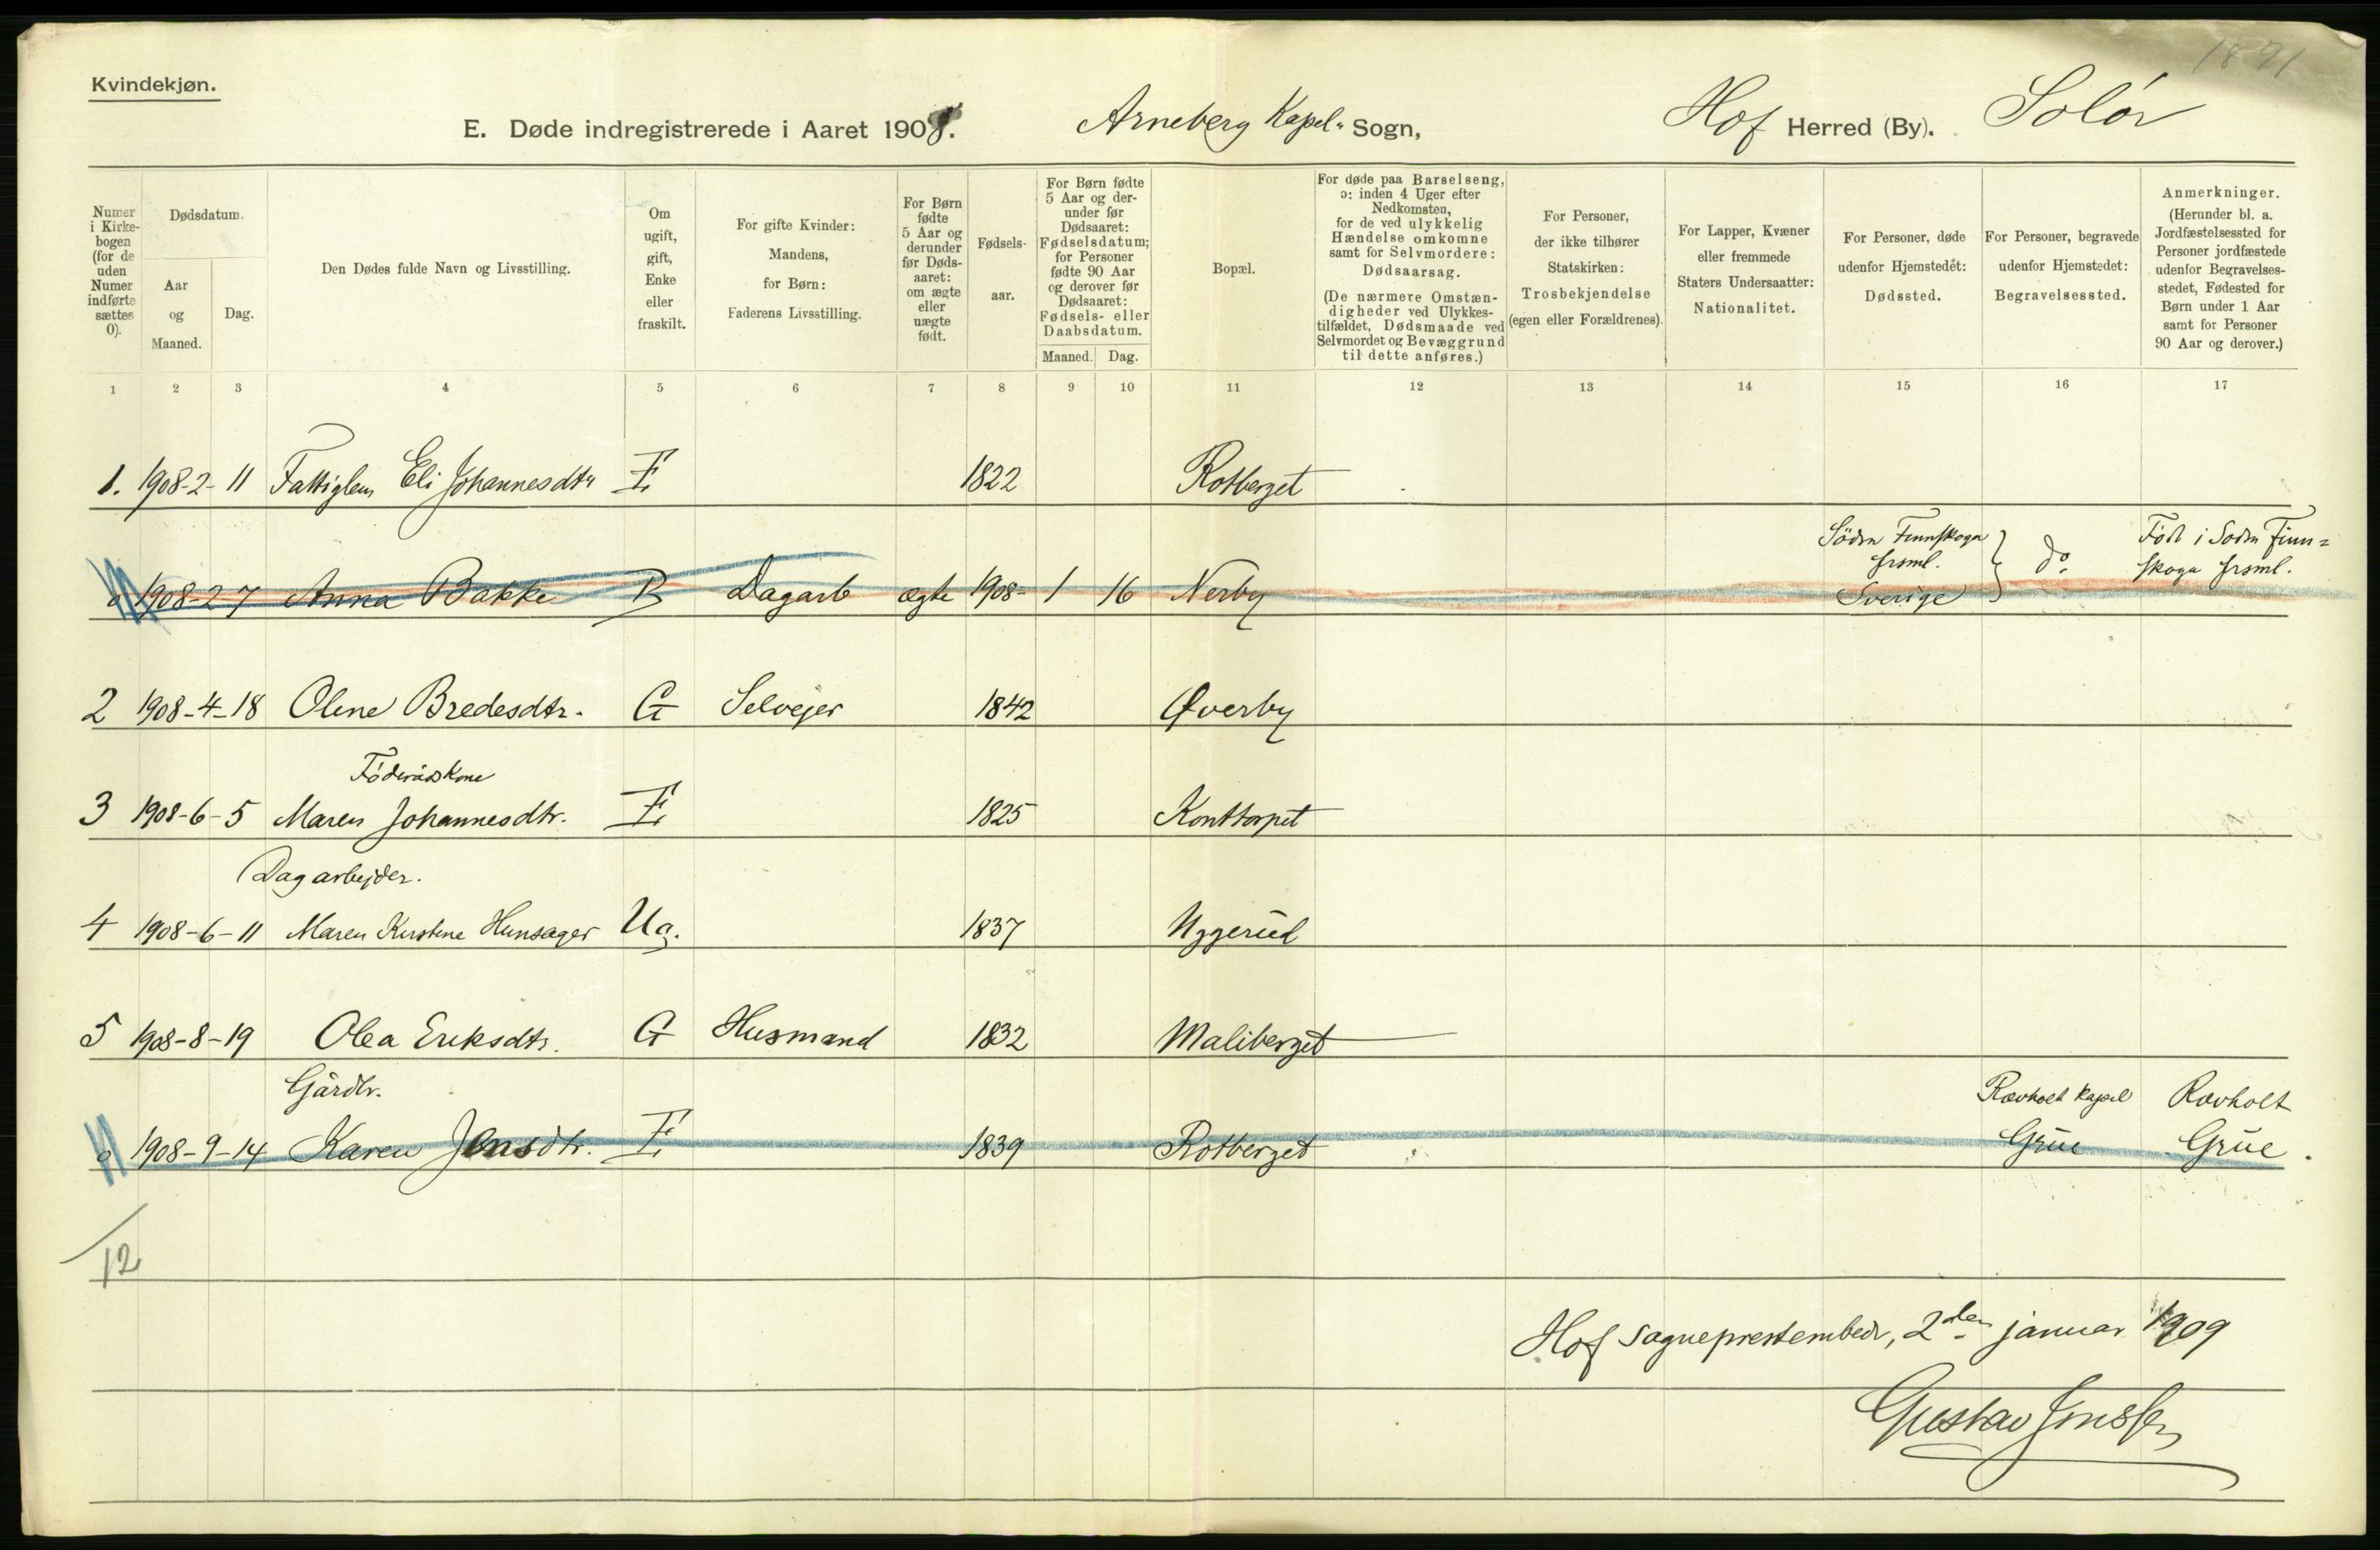 1891
Kvindekjøn.
E. Døde indregistrerede i Aaret 1908. Arneberg Kapel- Sogn, Hof Herred (By). Solør
Numer
i Kirke-
bogen
(for de
uden
Numer
indførte
sættes
0).
Dødsdatum.
Aar
og
Maaned.
Dag.
Den Dødes fulde Navn og Livsstilling.
Om
ugift,
gift,
Enke
eller
fraskilt.
For gifte Kvinder:
Mandens,
for Børn:
Faderens Livsstilling.
For Børn
fødte
5 Aar og
derunder
før Døds-
aaret:
om ægte
eller
uægte
født.
Fødsels-
aar.
For Børn fødte
5 Aar og der-
under før
Dødsaaret:
Fødselsdatum;
for Personer
fødte 90 Aar
og derover før
Dødsaaret:
Fødsels- eller
Daabsdatum.
Maaned. Dag.
Bopæl.
For døde paa Barselseng,
ɔ: inden 4 Uger efter
Nedkomsten,
for de ved ulykkelig
Hændelse omkomne
samt for Selvmordere:
Dødsaarsag.
(De nærmere Omstæn-
digheder ved Ulykkes-
tilfældet, Dødsmaade ved
Selvmordet og Bevæggrund
til dette anføres.)
For Personer,
der ikke tilhører
Statskirken:
Trosbekjendelse
(egen eller Forældrenes).
For Lapper, Kvæner
eller fremmede
Staters Undersaatter:
Nationalitet.
For Personer, døde
udenfor Hjemstedet:
Dødssted.
For Personer, begravede
udenfor Hjemstedet:
Begravelsessted.
Anmerkninger.
(Herunder bl. a.
Jordfæstelsessted for
Personer jordfæstede
udenfor Begravelses-
stedet, Fødested for
Børn under 1 Aar
samt for Personer
90 Aar og derover.)
1 2 3 4 5 6 7 8 9 10 11 12 13 14 15 16 17
1. 1908-2-11 Fattiglem Eli Johannesdtr E 1822 Rotberget
Södra Finnskoga Född i Södra Finn=
frsml. } do skoga frsml.
0 1908-2-7 Anna Bakke B Dagarb ægte 1908- 1 16 Nerby Sverige
2 1908-4-18 Oline Bredesdtr. G Selvejer 1842 Øverby
Föderådskone
3 1908-6-5 Maren Johannesdtr. E 1825 Konttorpet
Dagarbejder.
4 1908-6-11 Maren Kirstine Hunsager Ug. 1837 Uggerud
5 1908-8-19 Olea Eriksdtr. G Husmand 1832 Maliberget
Gårdbr. Rovholt Kapel Rovholt
0 1908-9-14 Karen Jonsdtr. E 1839 Rotberget Grue Grue.
12
Hof sogneprestembede, 2den januar 1909
Gustav Jensen